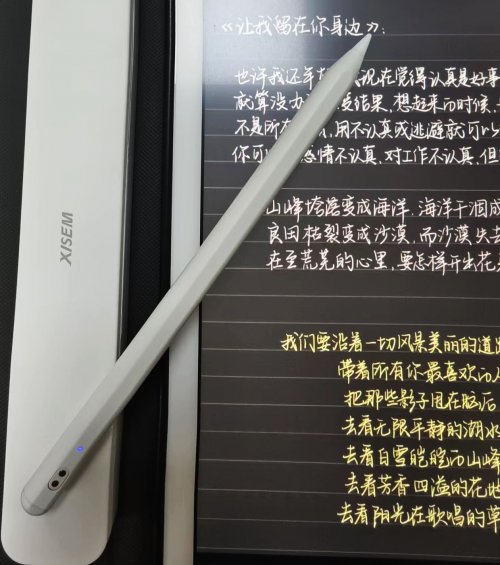 XISEM
《让我留在你身边》:
也许我还年 现在觉得认真是好事
就算没办 结果,想起来的时候,
不是所 用不认真或逃避就可以
你可 感情不认真,对工作不认真,但
山峰垮塌变成海洋,海洋干涸成
良田枯裂变成沙漠,而沙漠失去
在至荒芜的心里,要怎样开出花
我们要沿着一切风景美丽的道路
带着所有你最喜欢的
把那些影子甩在脑后
去看无限平静的湖水
去看白雪皑皑的山峰
去看芳香四溢的花地
去看阳光在歌唱的草